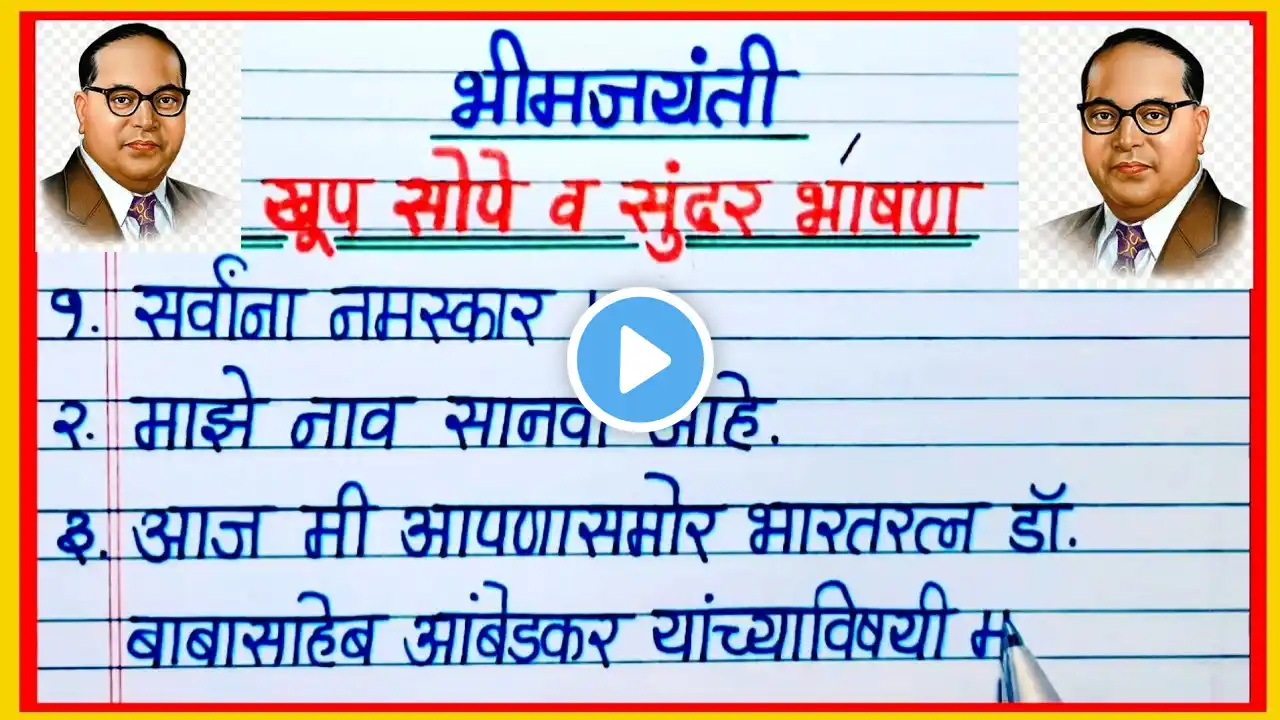 भीमजयंती
खूप सोपे व सुंदर भाषण
१. सर्वांना नमस्कार
२. माझे नाव सानवी आहे.
३. आज मी आपणासमोर भारतरत्न डॉ.
बाबासाहेब आंबेडकर यांच्याविषयी म